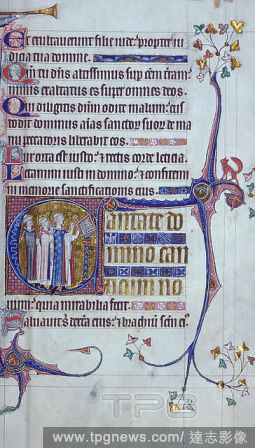 Et exultaverunt filie iude: propter iu
dicia tua domine.
Qm tu dns altissimus sup oem tram:
nimis exaltatus es super omnes deos.
Qui diligitis dnm odite malum: cus
todit dominus aias sanctorum suorum de ma
nu peccatoris liberabit eos.
Lux orta est iusto: et rectis corde leticia.
Letamini iusti in domino: et confitemi
ni memorie sanctificationis eius.
Cantate do
mino can
ticum no
uum: quia mirabilia fecit.
Saluauit s dextera eius: et brachium sem ei
TPG
www.tpgnews.com/達志影像